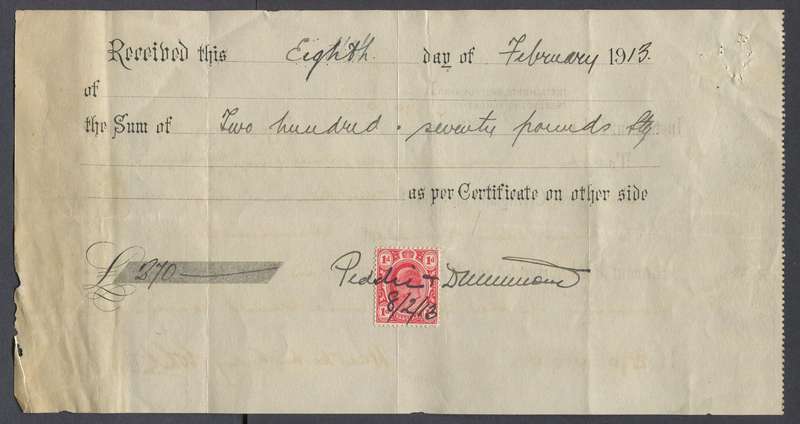 Received this Eighth day of February 1913.
of
the Sum of Two hundred & seventy pounds Stg
as per Certificate on other side
£ 270
Peddie & Drummond
1d 1d
8/2/13